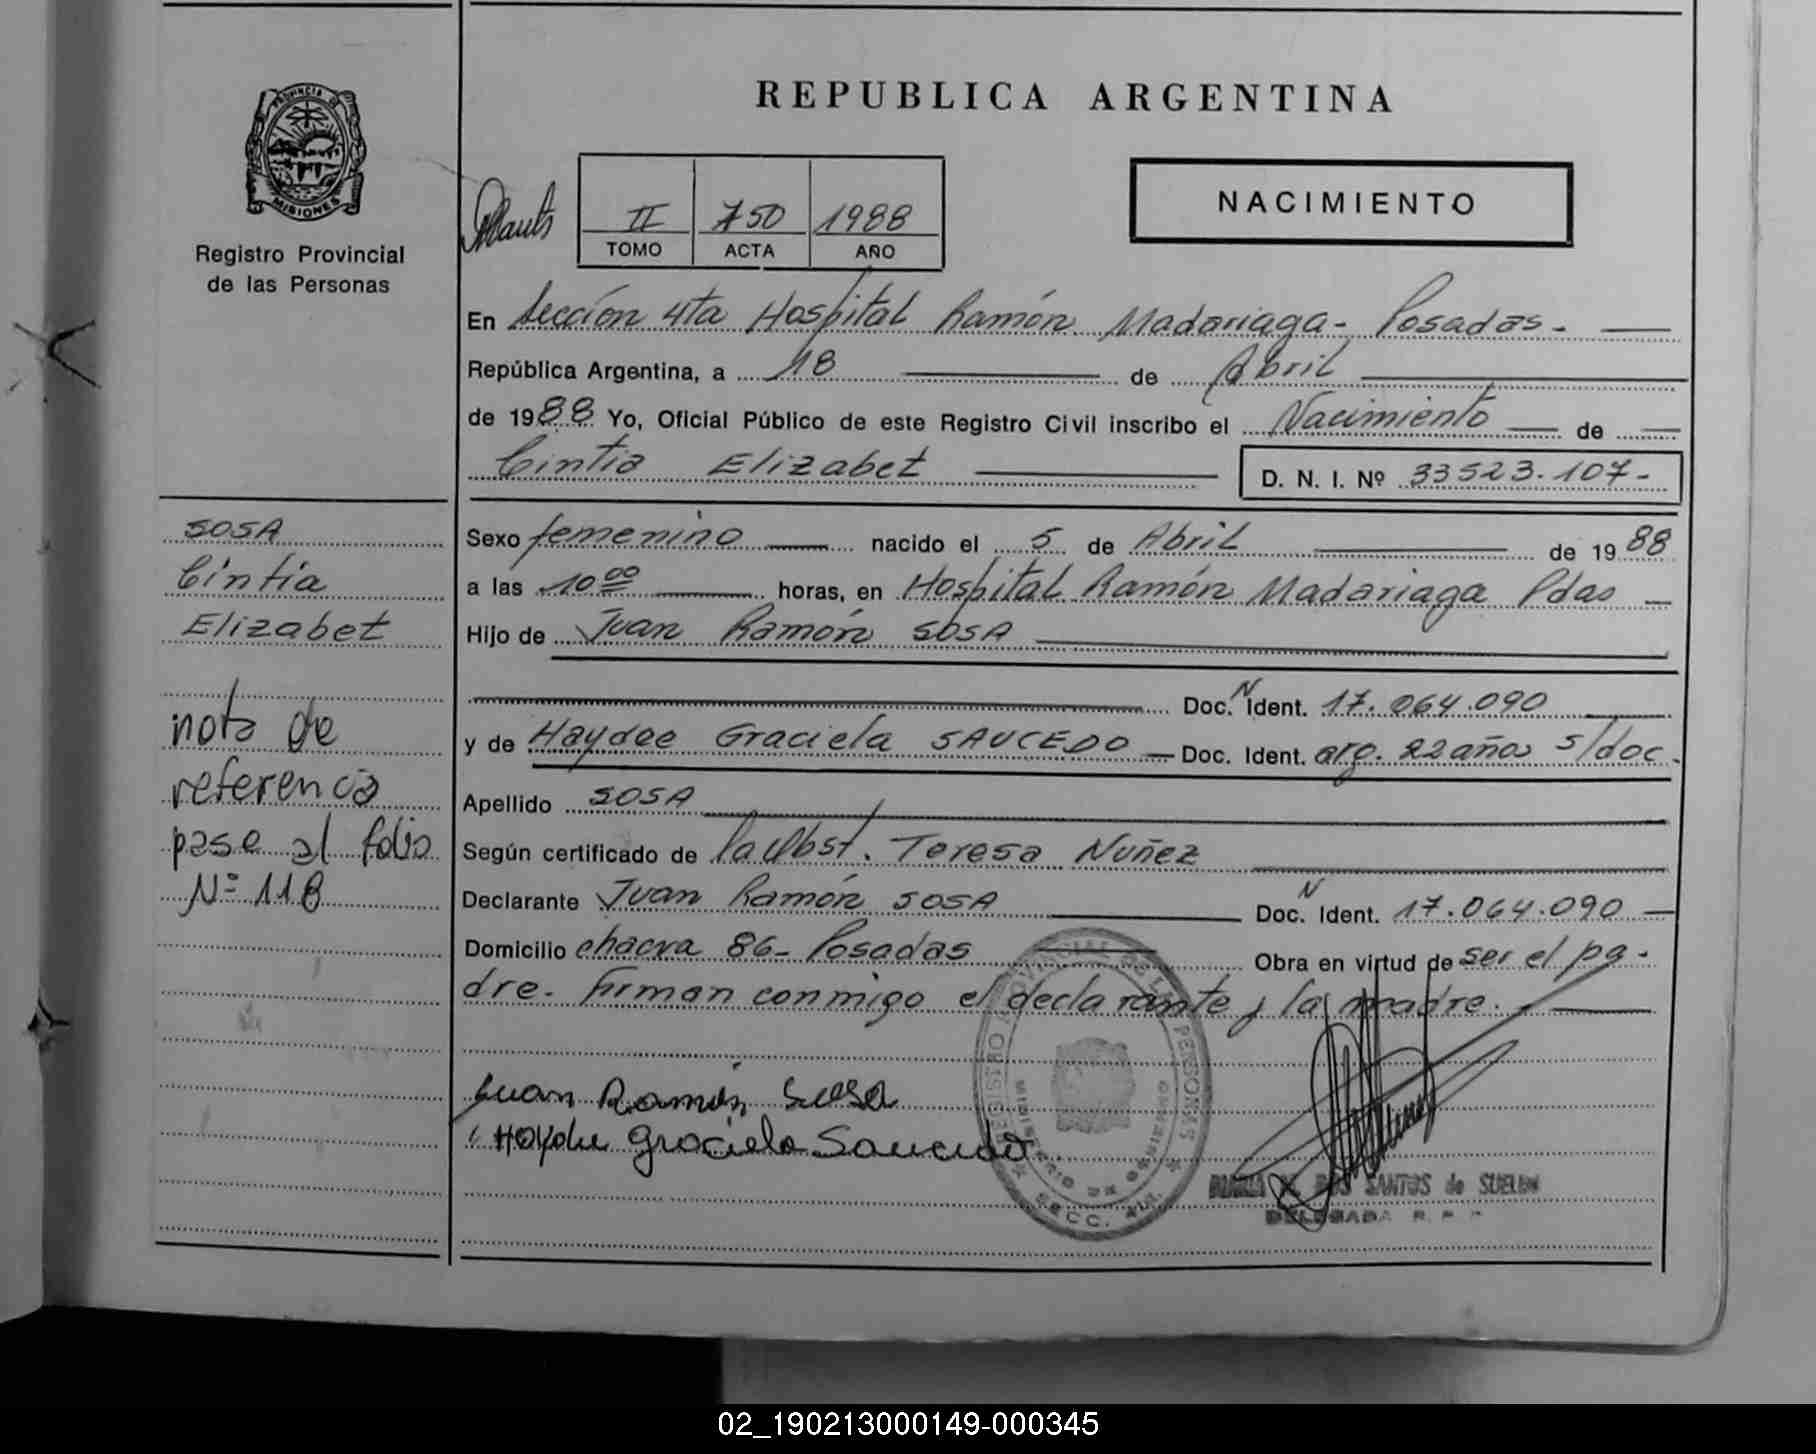 REPUBLICA ARGENTINA
PROVINCIA DE
MISIONES
Registro Provincial
de las Personas
II 750 1988
TOMO ACTA AÑO
NACIMIENTO
En Sección 4ta Hospital Ramón Madariaga - Posadas -
República Argentina, a 18 de Abril
de 1988 Yo, Oficial Público de este Registro Civil inscribo el Nacimiento de
Cintia Elizabet D. N. I. Nº 33523.107-
SOSA
Cintia
Elizabet
nota de
referencia
pase al folio
Nº 118
Sexo femenino nacido el 5 de Abril de 1988
a las 10 00 horas, en Hospital Ramón Madariaga Pdas
Hijo de Juan Ramón SOSA
Doc. N Ident. 17.064.090
y de Haydee Graciela SAUCEDO Doc. Ident. arg. 22 años s/doc.
Apellido SOSA
Según certificado de la Obst. Teresa Nuñez
Declarante Juan Ramón SOSA Doc. N Ident. 17.064.090
Domicilio chacra 86- Posadas Obra en virtud de ser el pa-
dre. Firman conmigo el declarante y la madre.
Juan Ramón Sosa
Haydee Graciela Saucedo
REGISTRO PROVINCIAL DE LAS PERSONAS
MINISTERIO DE GOBIERNO
SECC.
DOS SANTOS de
DELEGADA R. P. P.
02_190213000149-000345